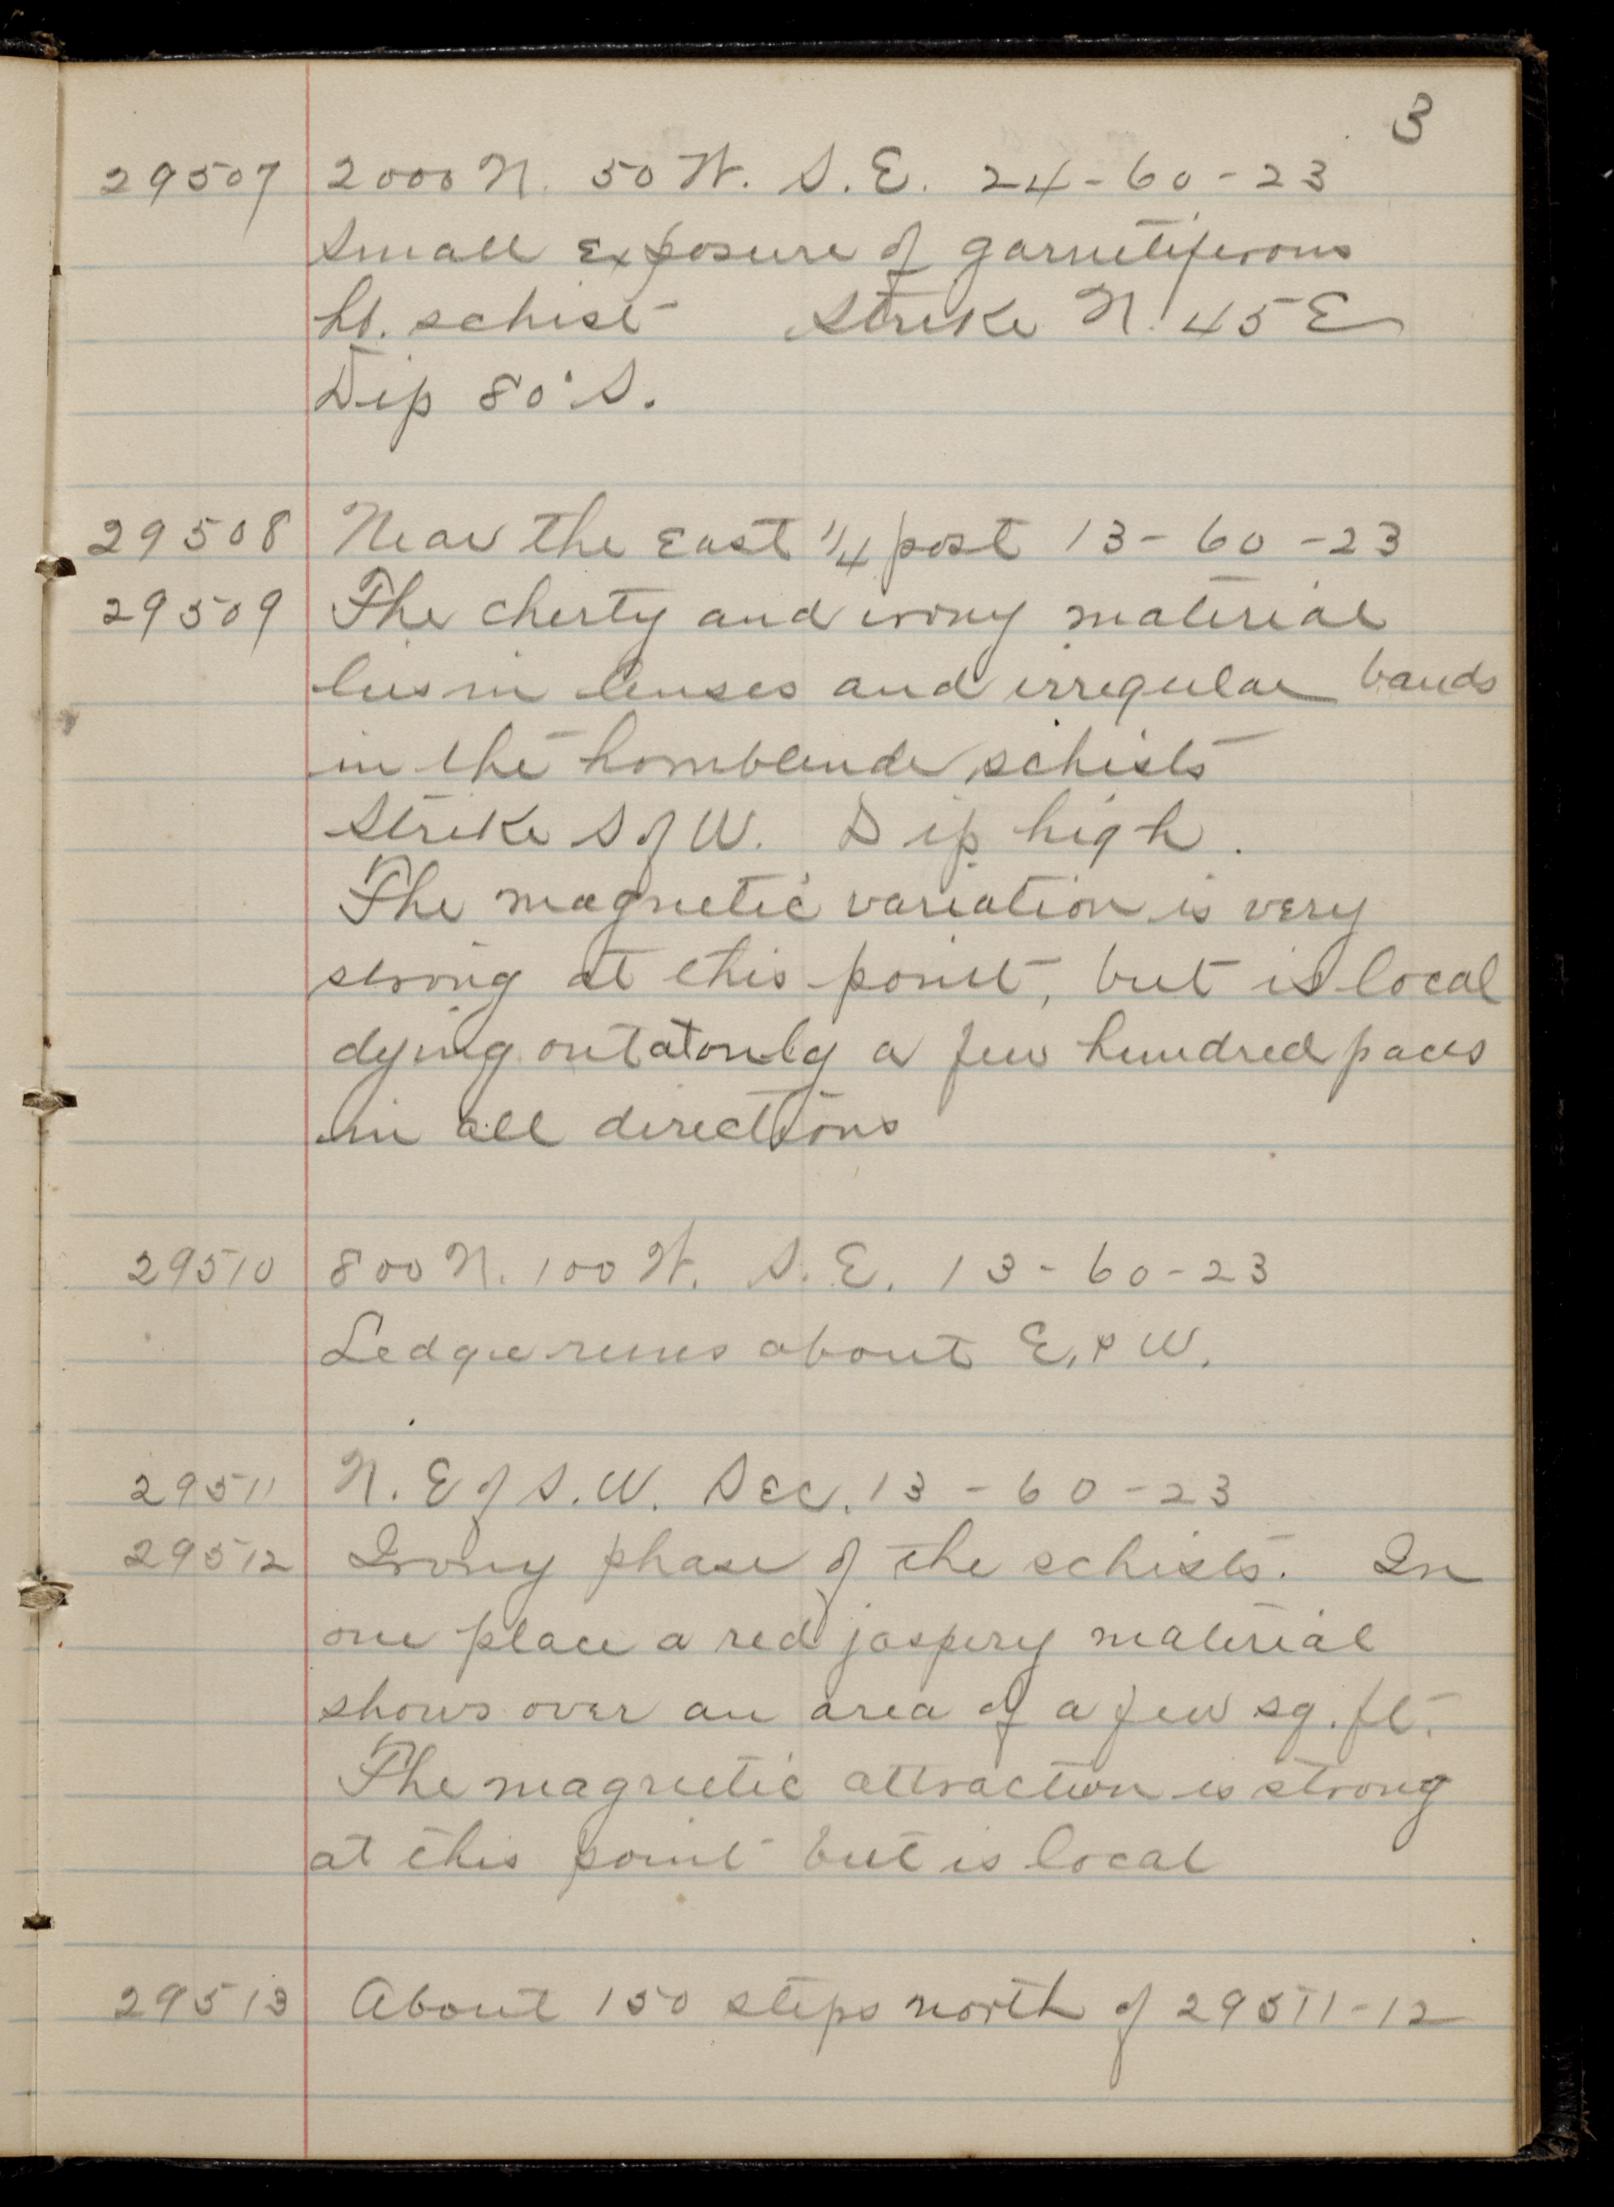 3
29507 2000 N. 50 W. S.E. 24-60-23
Small Exposure of garnetiferous
hb. schist Strike N. 45 E
Dip 80° S.
29508 Near the East 1/4 post 13-60-23
29509 The cherty and irony material
lies in lenses and irregular bands
in the hornblende schists
Strike S of W. Dip high.
The magnetic variation is very
strong at this point, but is local
dying out at only a few hundred paces
in all directions
29510 800 N. 100 W. S.E. 13-60-23
Ledge runs about E. & W.
29511 N.E of S.W. Sec. 13-60-23
29512 Irony phase of the schists. In
one place a red jaspery material
shows over an area of a few sq. ft.
The magnetic attraction is strong
at this point but is local
29513 About 150 steps north of 29511-12